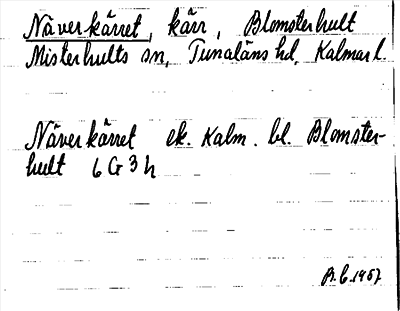 Näverkärret, kärr, Blomsterhult
Misterhults sn, Tunaläns hd, Kalmar l.
Näverkärret ek. Kalm. bl. Blomster-
hult 6 G 3 h
B.C. 1957